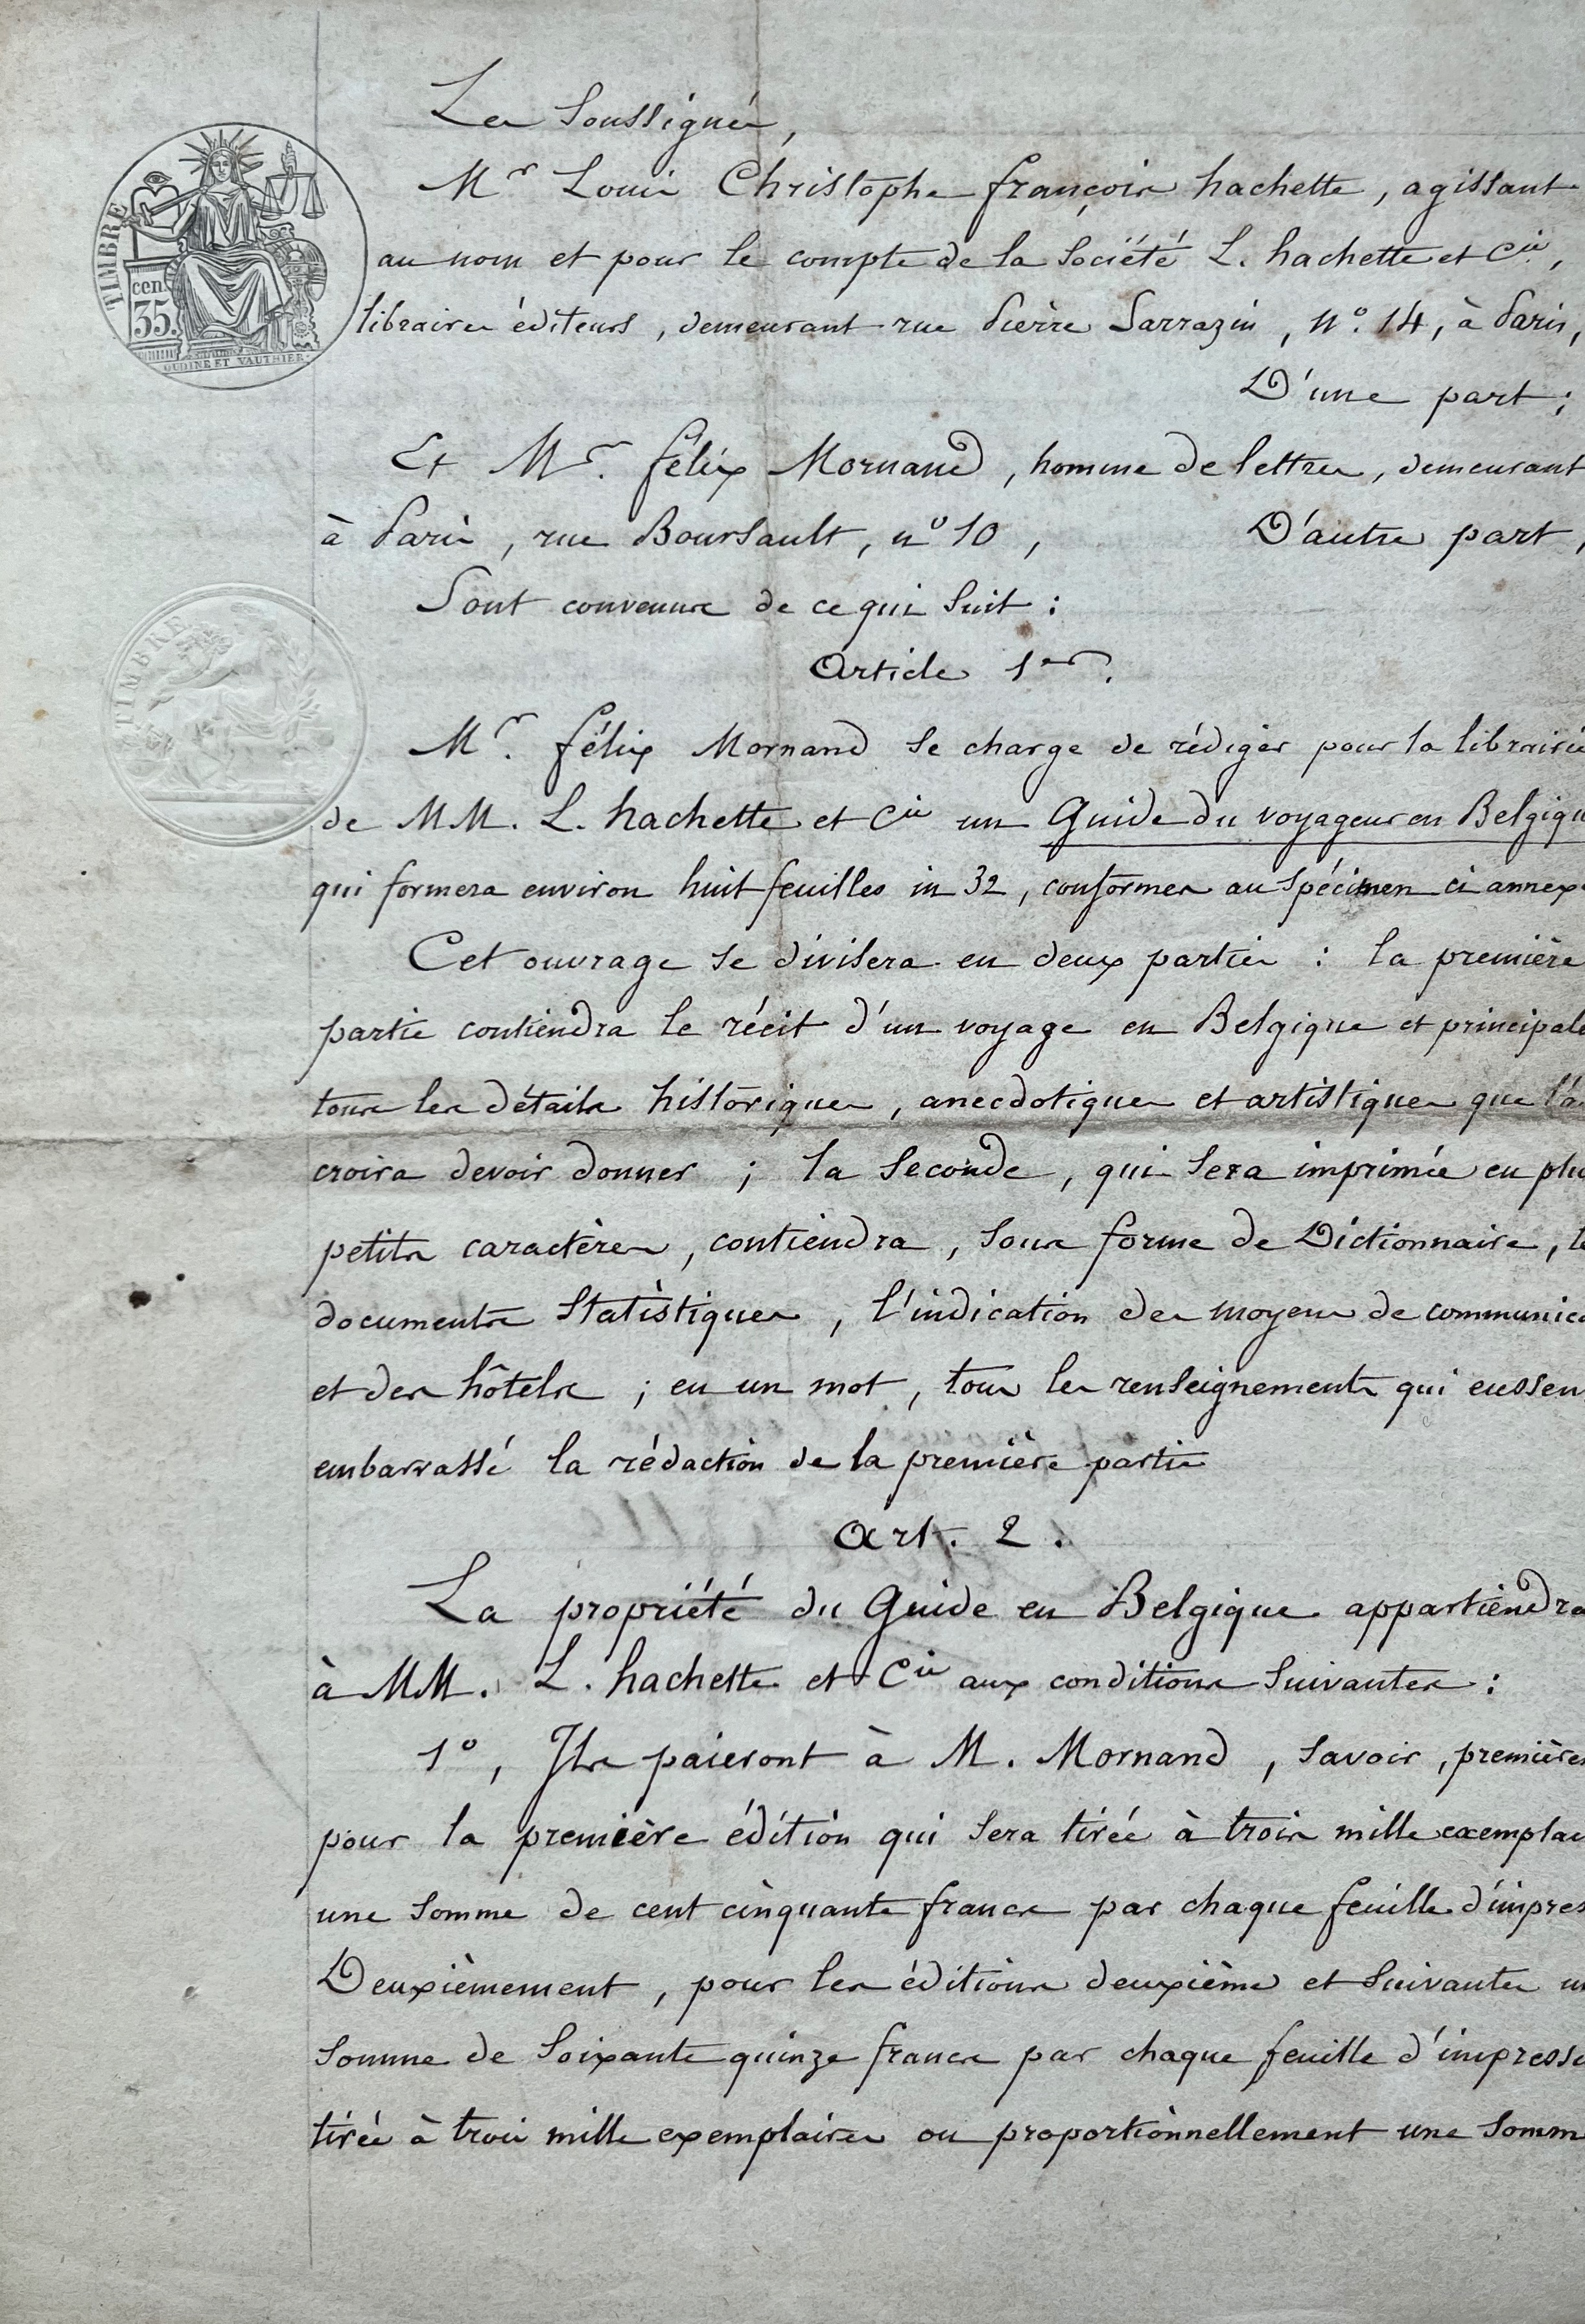 Les Soussignés,
Mr Louis Christophe françois hachette, agissant
au nom et pour le compte de la Société L. hachette et Cie,
libraires éditeurs, demeurant rue Pierre Sarrazin, No. 14, à Paris,
D'une part;
Et Mr. félix Mornand, homme de lettres, demeurant
à Paris, rue Boursault, no 10, D'autre part,
Sont convenus de ce qui Suit :
Article 1er.
Mr. félix Mornand se charge de rédiger pour la librairie
de MM. L. hachette et Cie un Guide du voyageur en Belgiqu
qui formera environ huit feuilles in 32, conformes au spécimen ci annexé
Cet ouvrage se divisera en deux parties : la première
partie contiendra le récit d'un voyage en Belgique et principale
tous les détails historiques, anecdotiques et artistiques que l'a
croira devoir donner ; la Seconde, qui Sera imprimée en plu
petits caractères, contiendra, sous forme de Dictionnaire, le
documents Statistiques, l'indication des moyens de communica
et des hôtels ; en un mot, tous les renseignements qui eussen
embarrassé la rédaction de la première partie
Art. 2.
La propriété du Guide en Belgique appartiendra
à MM. L. hachette et Cie aux conditions Suivantes :
1o, Ils paieront à M. Mornand, savoir, première
pour la première édition qui sera tirée à trois mille exemplai
une somme de cent cinquante francs par chaque feuille d'impres
Deuxièmement, pour les éditions deuxième et Suivantes u
Somme de Soixante quinze francs par chaque feuille d'impressi
tirée à trois mille exemplaires ou proportionnellement une Somm
TIMBRE
cen.
35.
OUDINE ET VAUTHIER
TIMBRE